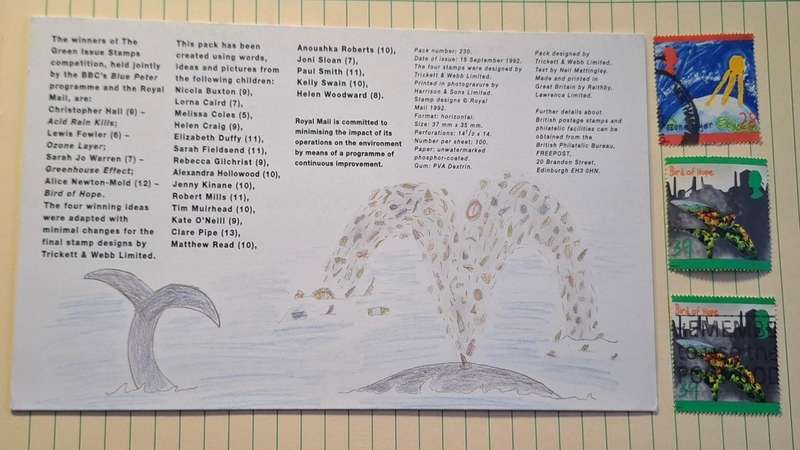 The winners of The
Green Issue Stamps
competition, held jointly
by the BBC's Blue Peter
programme and the Royal
Mail, are:
Christopher Hall (9) –
Acid Rain Kills;
Lewis Fowler (6) –
Ozone Layer;
Sarah Jo Warren (7) –
Greenhouse Effect;
Alice Newton-Mold (12) –
Bird of Hope.
The four winning ideas
were adapted with
minimal changes for the
final stamp designs by
Trickett & Webb Limited.
This pack has been
created using words,
ideas and pictures from
the following children:
Nicola Buxton (9),
Lorna Caird (7),
Melissa Coles (5),
Helen Craig (9),
Elizabeth Duffy (11),
Sarah Fieldsend (11),
Rebecca Gilchrist (9),
Alexandra Hollowood (10),
Jenny Kinane (10),
Robert Mills (11),
Tim Muirhead (10),
Kate O'Neill (9),
Clare Pipe (13),
Matthew Read (10),
Anoushka Roberts (10),
Joni Sloan (7),
Paul Smith (11),
Kelly Swain (10),
Helen Woodward (8).
Royal Mail is committed to
minimising the impact of its
operations on the environment
by means of a programme of
continuous improvement.
Pack number: 230.
Date of issue: 15 September 1992.
The four stamps were designed by
Trickett & Webb Limited.
Printed in photogravure by
Harrison & Sons Limited.
Stamp designs © Royal
Mail 1992.
Format: horizontal.
Size: 37 mm x 35 mm.
Perforations: 14½ x 14.
Number per sheet: 100.
Paper: unwatermarked
phosphor-coated.
Gum: PVA Dextrin.
Pack designed by
Trickett & Webb Limited.
Text by Neil Mattingley.
Made and printed in
Great Britain by Raithby,
Lawrence Limited.
Further details about
British postage stamps and
philatelic facilities can be
obtained from the
British Philatelic Bureau,
FREEPOST,
20 Brandon Street,
Edinburgh EH3 0HN.
28
Bird of Hope
39
Bird of Hope
39